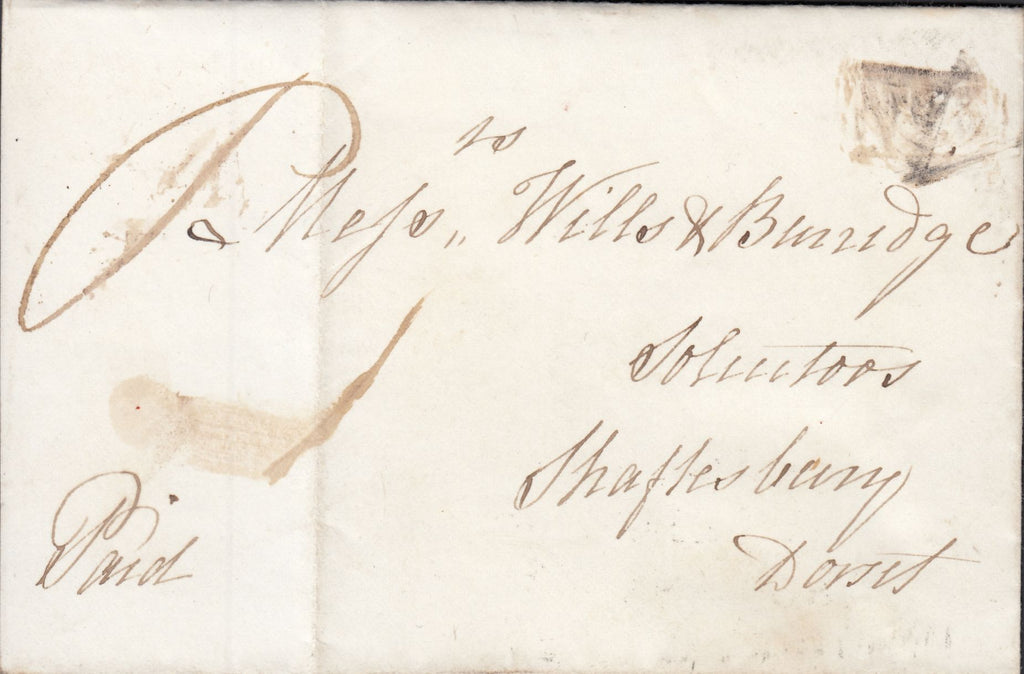 Messrs Wills & Burridge
Solicitors
Shaftesbury
Dorset
Paid